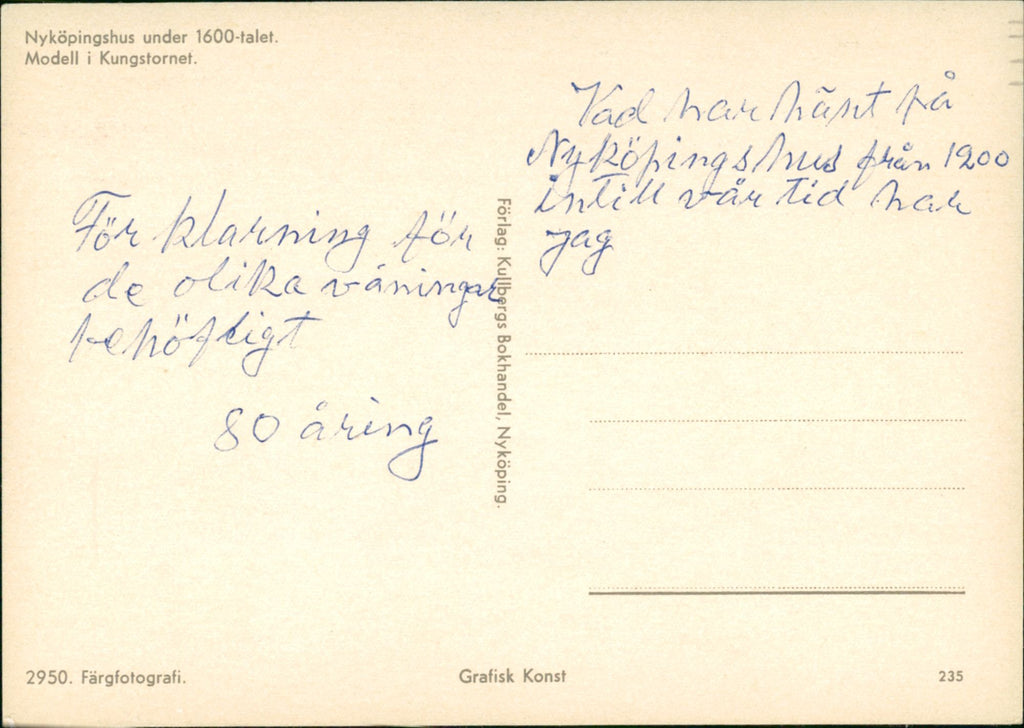 Nyköpingshus under 1600-talet.
Modell i Kungstornet.
För klarning för
de olika våningar
behöfligt
80 åring
Förlag: Kullbergs Bokhandel, Nyköping.
Vad har hänt på
Nyköpingshus från 1200
intill vår tid har
jag
2950. Färgfotografi.
Grafisk Konst
235